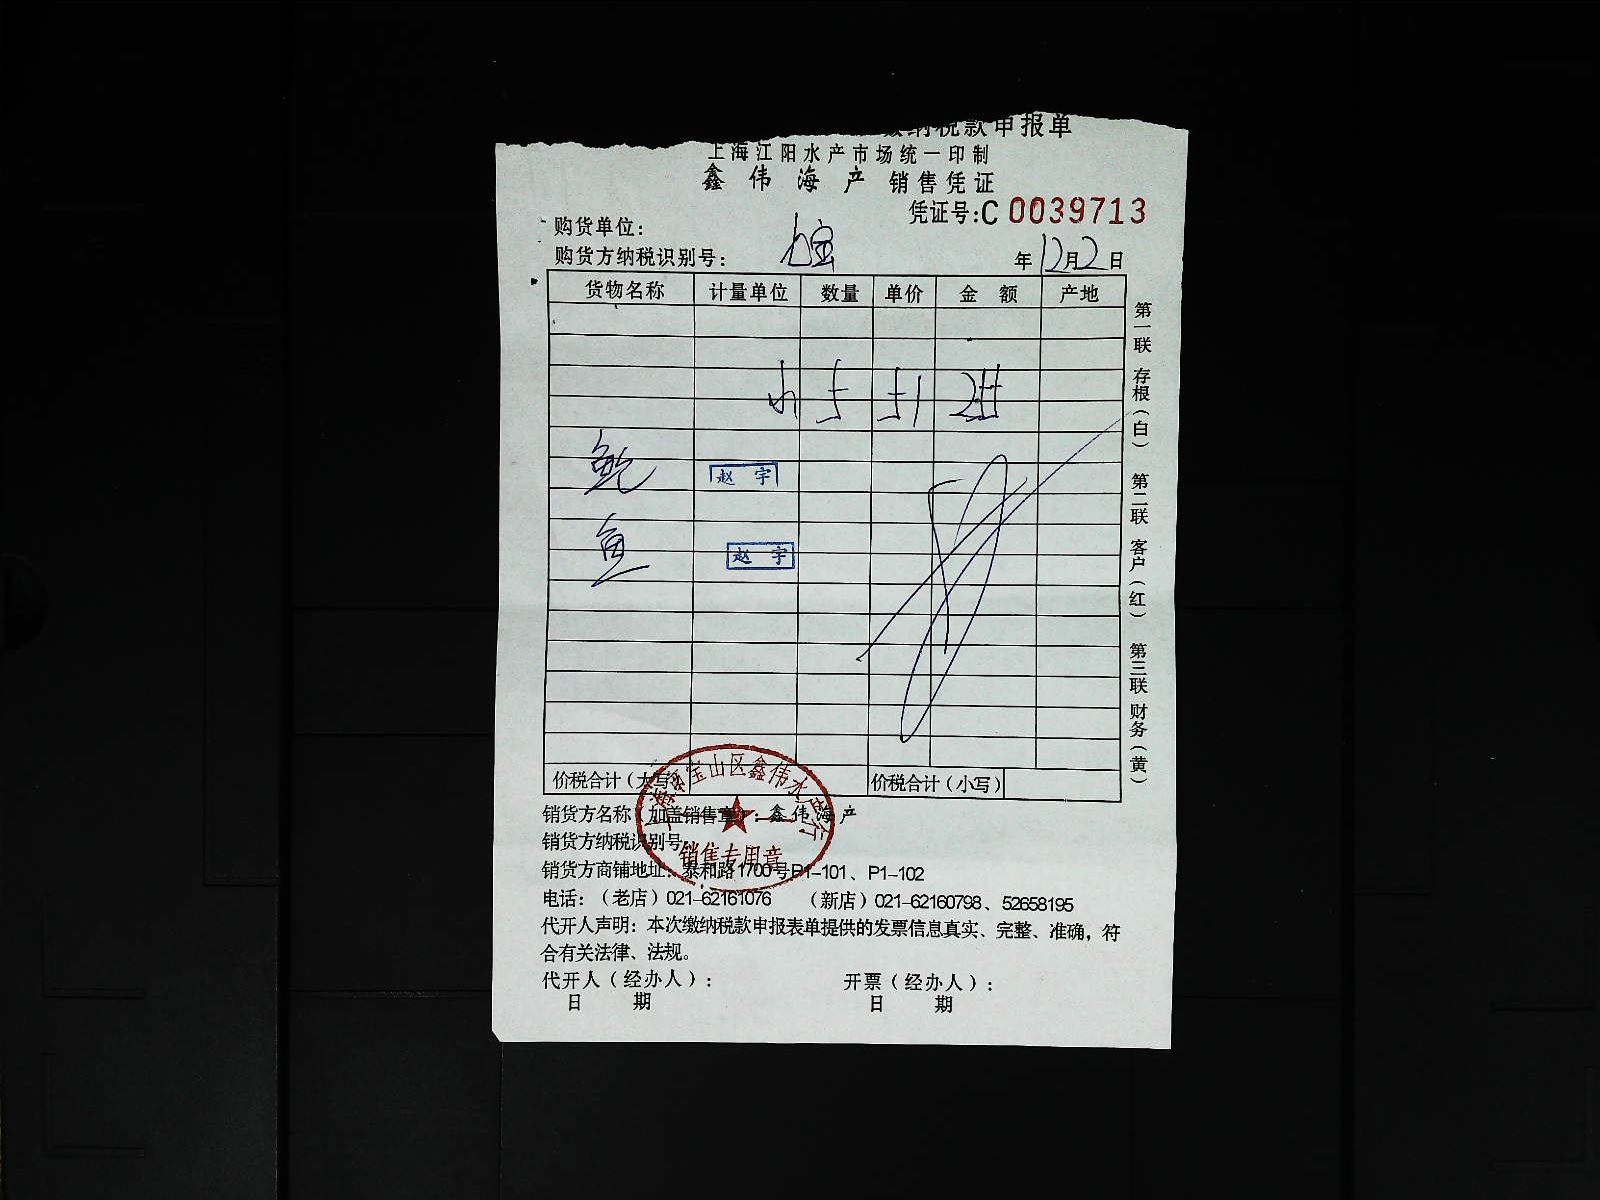 缴纳税款申报单
上海江阳水产市场统一印制
鑫伟海产 销售凭证
凭证号:C 0039713
购货单位:
购货方纳税识别号: 年12月2日
货物名称 计量单位 数量 单价 金额 产地
鲍 赵宇
鱼 赵宇
价税合计(大写) 价税合计(小写)
销货方名称(加盖销售章):鑫伟海产
销货方纳税识别号:
销货方商铺地址:泰和路1700号P1-101、P1-102
电话:(老店)021-62161076 (新店)021-62160798、52658195
代开人声明:本次缴纳税款申报表单提供的发票信息真实、完整、准确,符
合有关法律、法规。
代开人(经办人): 开票(经办人):
日期 日期
第一联 存根(白) 第二联 客户(红) 第三联 财务(黄)
宝山区鑫伟水产行
销售专用章